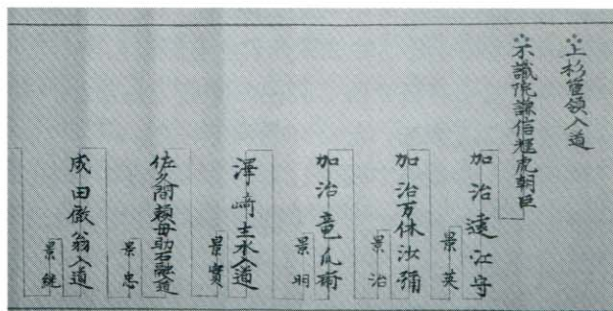 上杉管領入道
不識院謙信輝虎朝臣
加治遠江守
景英
加治万休汝彌
景治
加治竜爪斎
景明
澤崎主水入道
景實
佐久間頼母助石融道
景忠
成田徹翁入道
景継